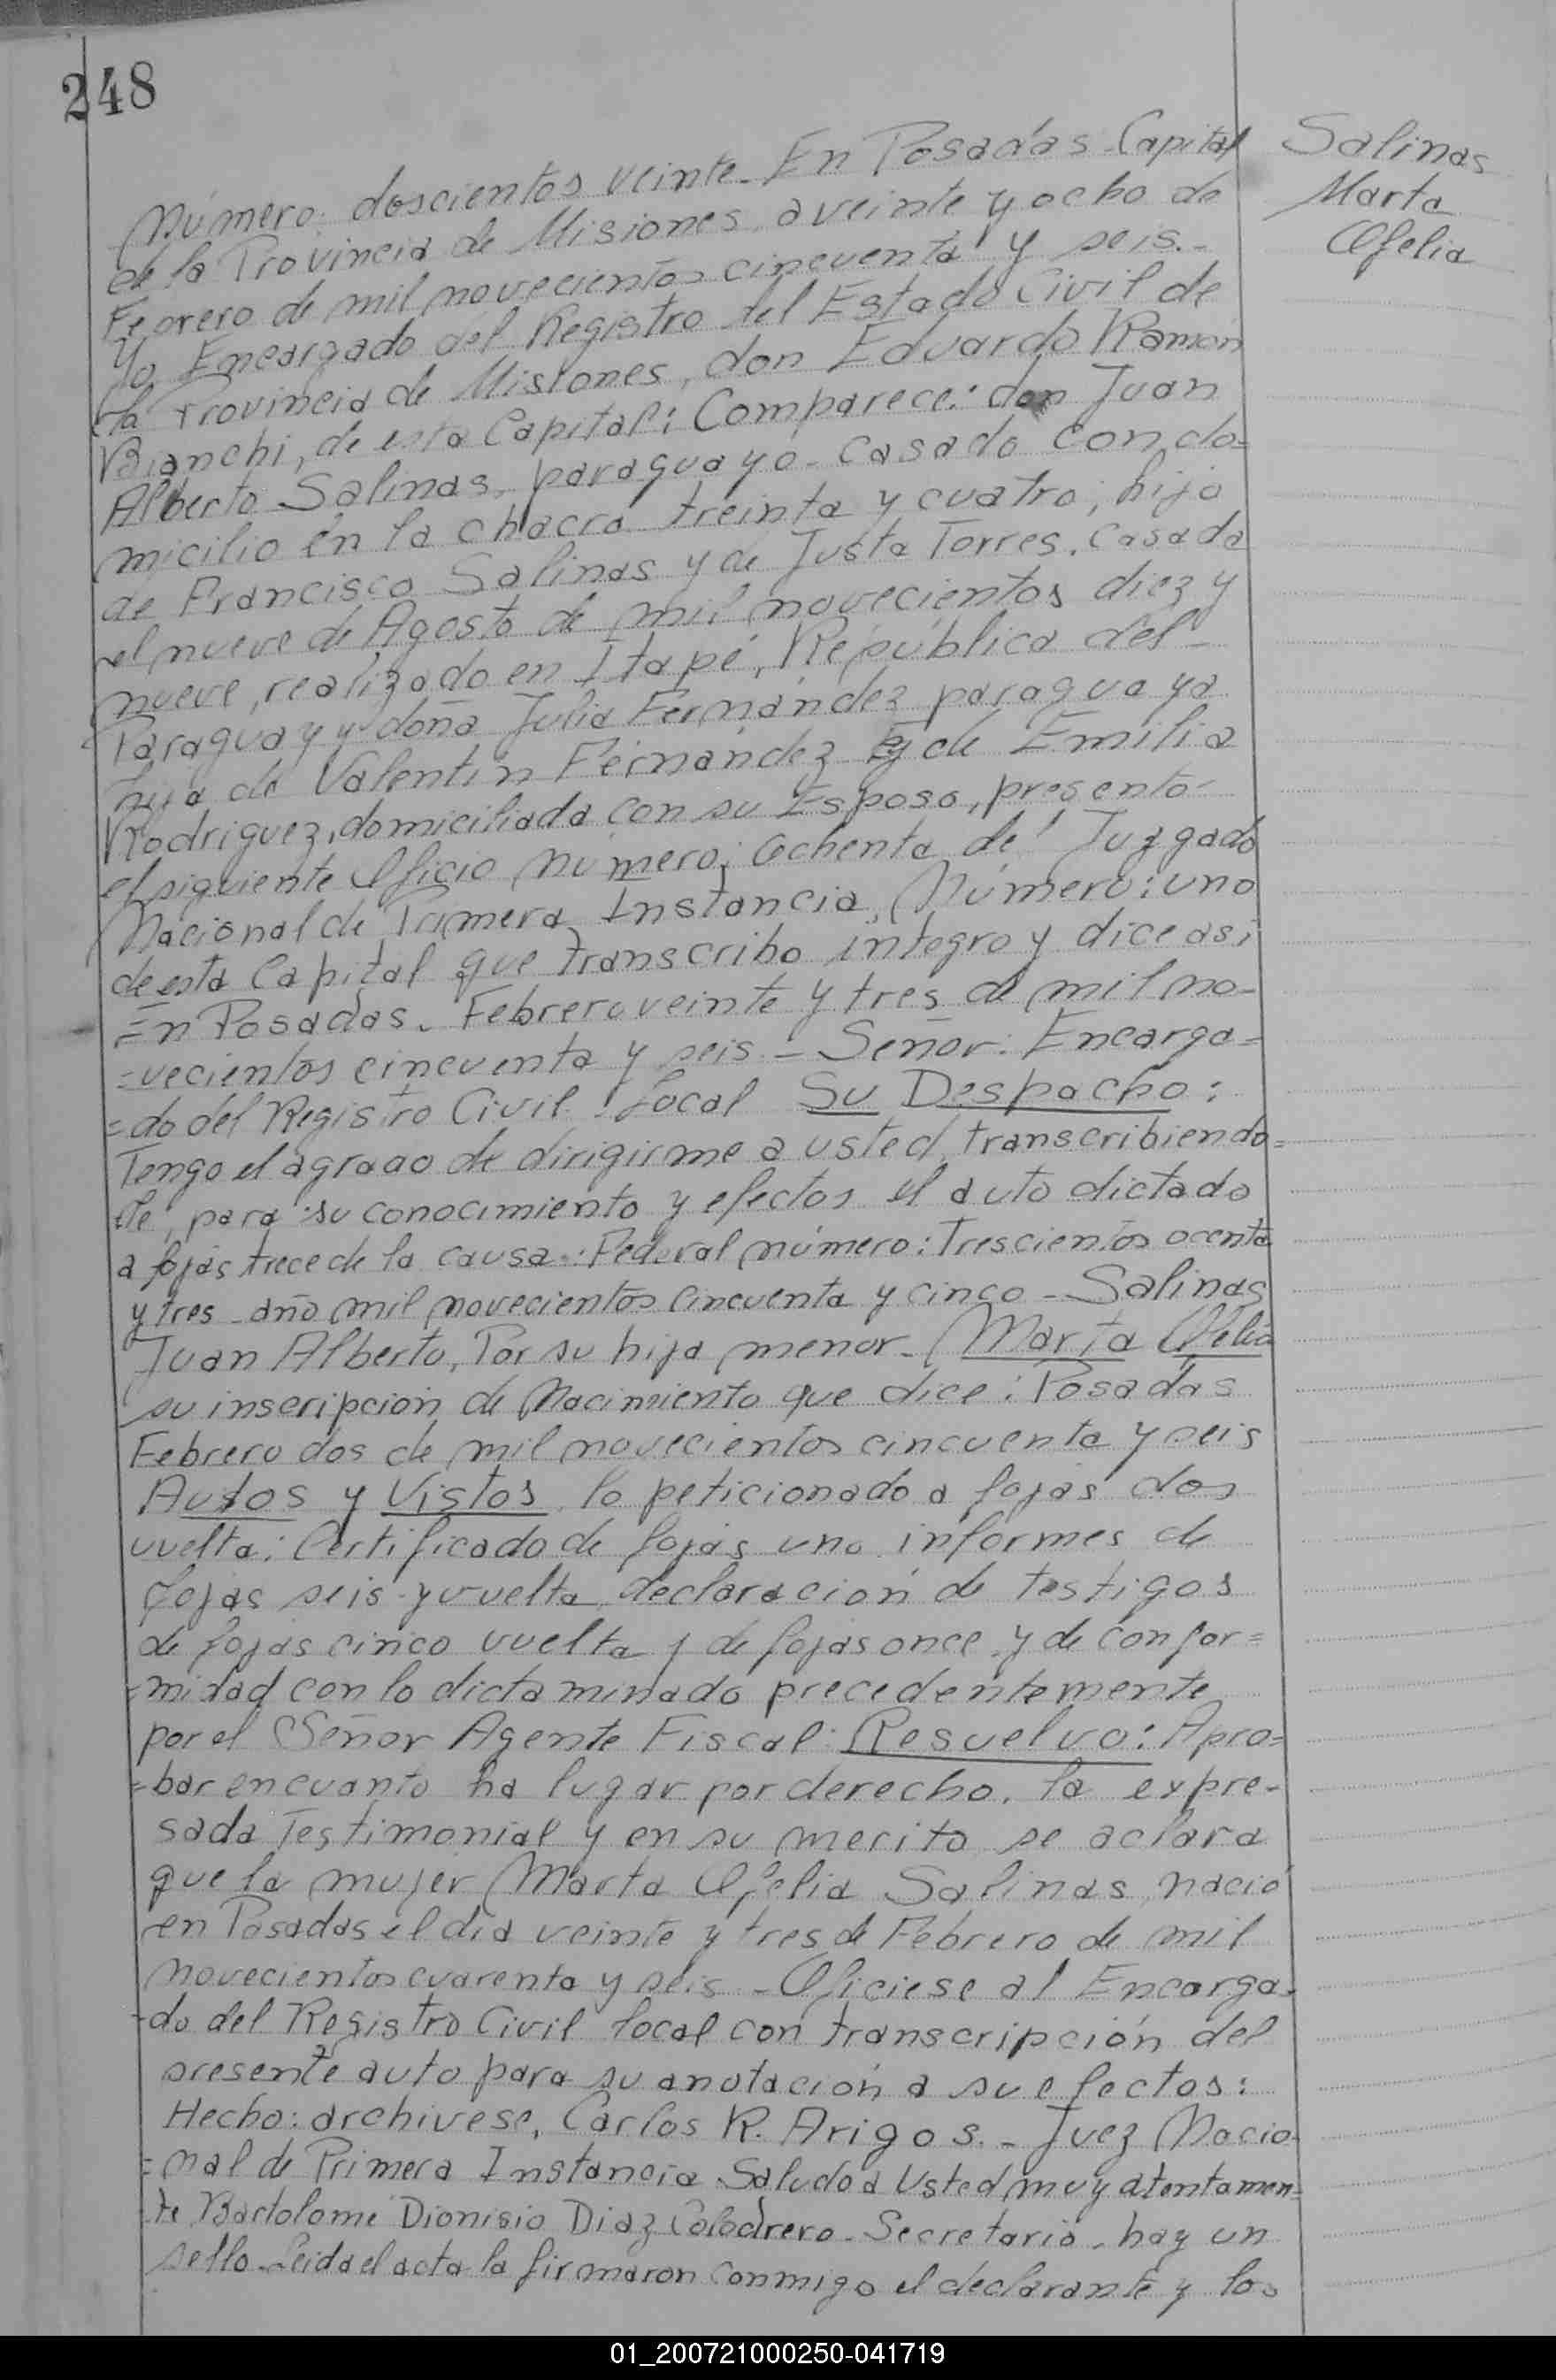 248
Salinas
Marta
Ofelia
Número: doscientos veinte - En Posadas - Capital
de la Provincia de Misiones, a veinte y ocho de
Febrero de mil novecientos cincuenta y seis.-
Yo Encargado del Registro del Estado Civil de
la Provincia de Misiones, don Eduardo Ramon
Bianchi, de esta Capital: Comparece: don Juan
Alberto Salinas, paraguayo - casado con do=
micilio en la chacra treinta y cuatro, hijo
de Francisco Salinas y de Justa Torres. Casado
el nueve de Agosto de mil novecientos diez y
nueve, realizado en Itapé, República del
Paraguay y doña Julia Fernández paraguaya
hija de Valentín Fernández y de Emilia
Rodriguez, domiciliada con su Esposo, presento
el siguiente Oficio número: Ochenta del Juzgado
Nacional de Primera Instancia, Número: uno
de esta Capital que transcribo integro y dice asi
En Posadas. Febrero veinte y tres de mil no-
=vecientos cincuenta y seis - Señor: Encarga=
=do del Registro Civil Local Su Despacho:
Tengo el agrado de dirigirme a usted transcribiendo=
le, para su conocimiento y efectos el auto dictado
a fojas trece de la causa: Federal número: Trescientos ocenta
y tres - año mil novecientos cincuenta y cinco - Salinas
Juan Alberto, Por su hija menor - Marta Ofelia
su inscripción de Nacimiento que dice: Posadas
Febrero dos de mil novecientos cincuenta y seis
Autos y Vistos lo peticionado a fojas dos
vuelta: Certificado de fojas uno informes de
fojas seis y vuelta declaración de testigos
de fojas cinco vuelta y de fojas once y de confor=
=midad con lo dictaminado precedentemente
por el Señor Agente Fiscal: Resuelvo: Apro=
=bar en cuanto ha lugar por derecho, la expre-
sada Testimonial y en su merito se aclara
que la mujer Marta Ofelia Salinas nació
en Posadas el día veinte y tres de Febrero de mil
novecientos cuarenta y seis - Oficiese al Encarga-
-do del Registro Civil local con transcripción del
presente auto para su anotación a su efectos:
Hecho: archivese, Carlos R. Arigos. - Juez Nacio-
=nal de Primera Instancia - Saludo a Usted muy atentamen=
te Bartolomé Dionisio Diaz Colodrero - Secretario - hay un
sello. Leida el acta la firmaron conmigo el declarante y los
01_200721000250-041719